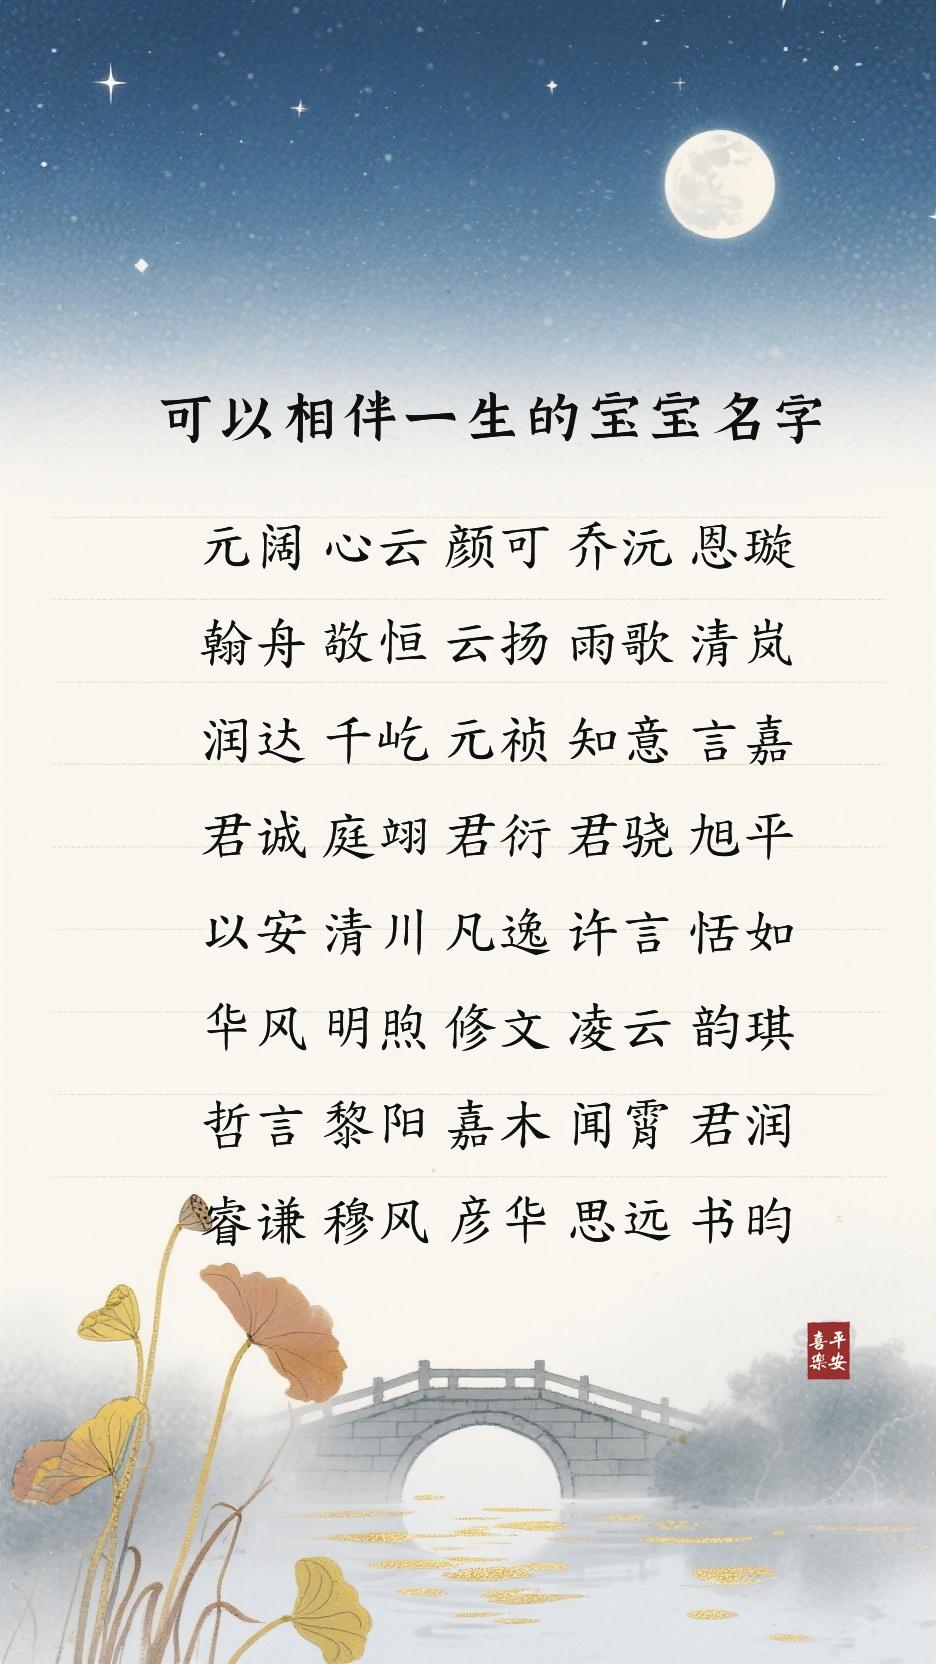 可以相伴一生的宝宝名字
元阔 心云 颜可 乔沅 恩璇
翰舟 敬恒 云扬 雨歌 清岚
润达 千屹 元祯 知意 言嘉
君诚 庭翊 君衍 君骁 旭平
以安 清川 凡逸 许言 恬如
华风 明煦 修文 凌云 韵琪
哲言 黎阳 嘉木 闻霄 君润
睿谦 穆风 彦华 思远 书昀
平安
喜樂